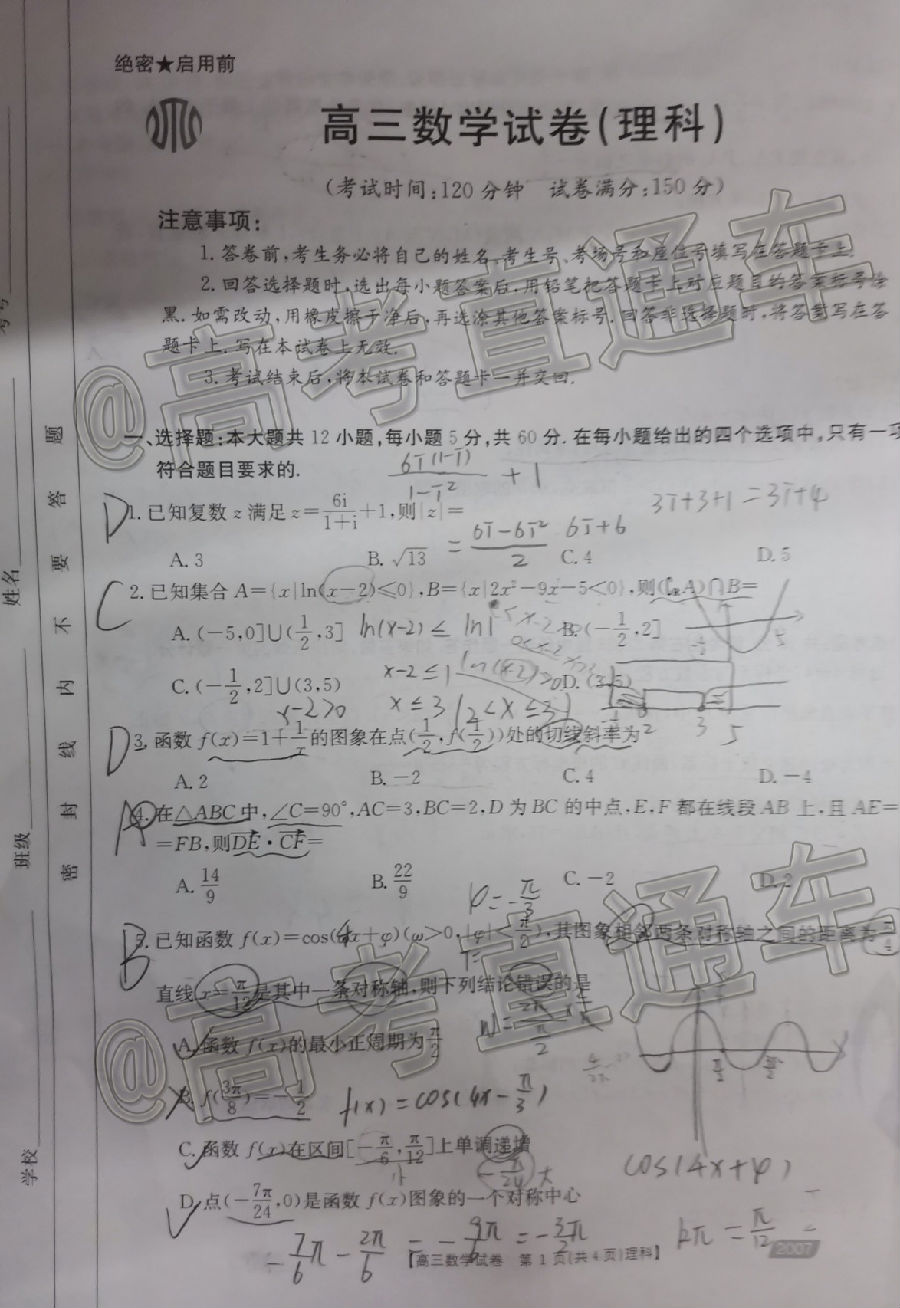 绝密★启用前
高三数学试卷(理科)
(考试时间:120分钟 试卷满分:150分)
注意事项:
1.答卷前,考生务必将自己的姓名、考生号、考场号和座位号填写在答题卡上.
2.回答选择题时,选出每小题答案后,用铅笔把答题卡上对应题目的答案标号涂
黑.如需改动,用橡皮擦干净后,再选涂其他答案标号.回答非选择题时,将答案写在答
题卡上.写在本试卷上无效.
3.考试结束后,将本试卷和答题卡一并交回.
@高考直通车
一、选择题:本大题共12小题,每小题5分,共60分.在每小题给出的四个选项中,只有一项
符合题目要求的.
6i(1-i)/1-i² +1
D 1.已知复数z满足z=6i/(1+i)+1,则|z|=
= 6i-6i²/2 6i+6 3i+3+1=3i+4
A.3 B.√13 C.4 D.5
C 2.已知集合A={x|ln(x-2)≤0},B={x|2x²-9x-5<0},则(∁RA)∩B=
A.(-5,0]∪(1/2,3] B.(-1/2,2]
ln(x-2)≤ln1
C.(-1/2,2]∪(3,5) D.(3,5)
x-2≤1
x-2>0 x≤3 {2<x≤3}
-1/2 2 3 5
D 3.函数f(x)=1+1/x的图象在点(1/2,f(1/2))处的切线斜率为
A.2 B.-2 C.4 D.-4
A 4.在△ABC中,∠C=90°,AC=3,BC=2,D为BC的中点,E,F都在线段AB上,且AE=
=FB,则DE·CF=
A.14/9 B.22/9 C.-2 D.2
φ=-π/3
B 5.已知函数f(x)=cos(ωx+φ)(ω>0,|φ|<π/2),其图象相邻两条对称轴之间的距离为π/4
直线x=π/12是其中一条对称轴,则下列结论错误的是
A.函数f(x)的最小正周期为π/2
B.f(3π/8)=-1/2
f(x)=cos(4x-π/3)
C.函数f(x)在区间[-π/6,π/12]上单调递增
cos(4x+φ)
D.点(-7π/24,0)是函数f(x)图象的一个对称中心
-7/6π-2π/6=-9π/6=-3π/2
kπ=π/12
【高三数学试卷 第1页(共4页)理科】
2007
@高考直通车
学校
班级
姓名
密封线内不要答题